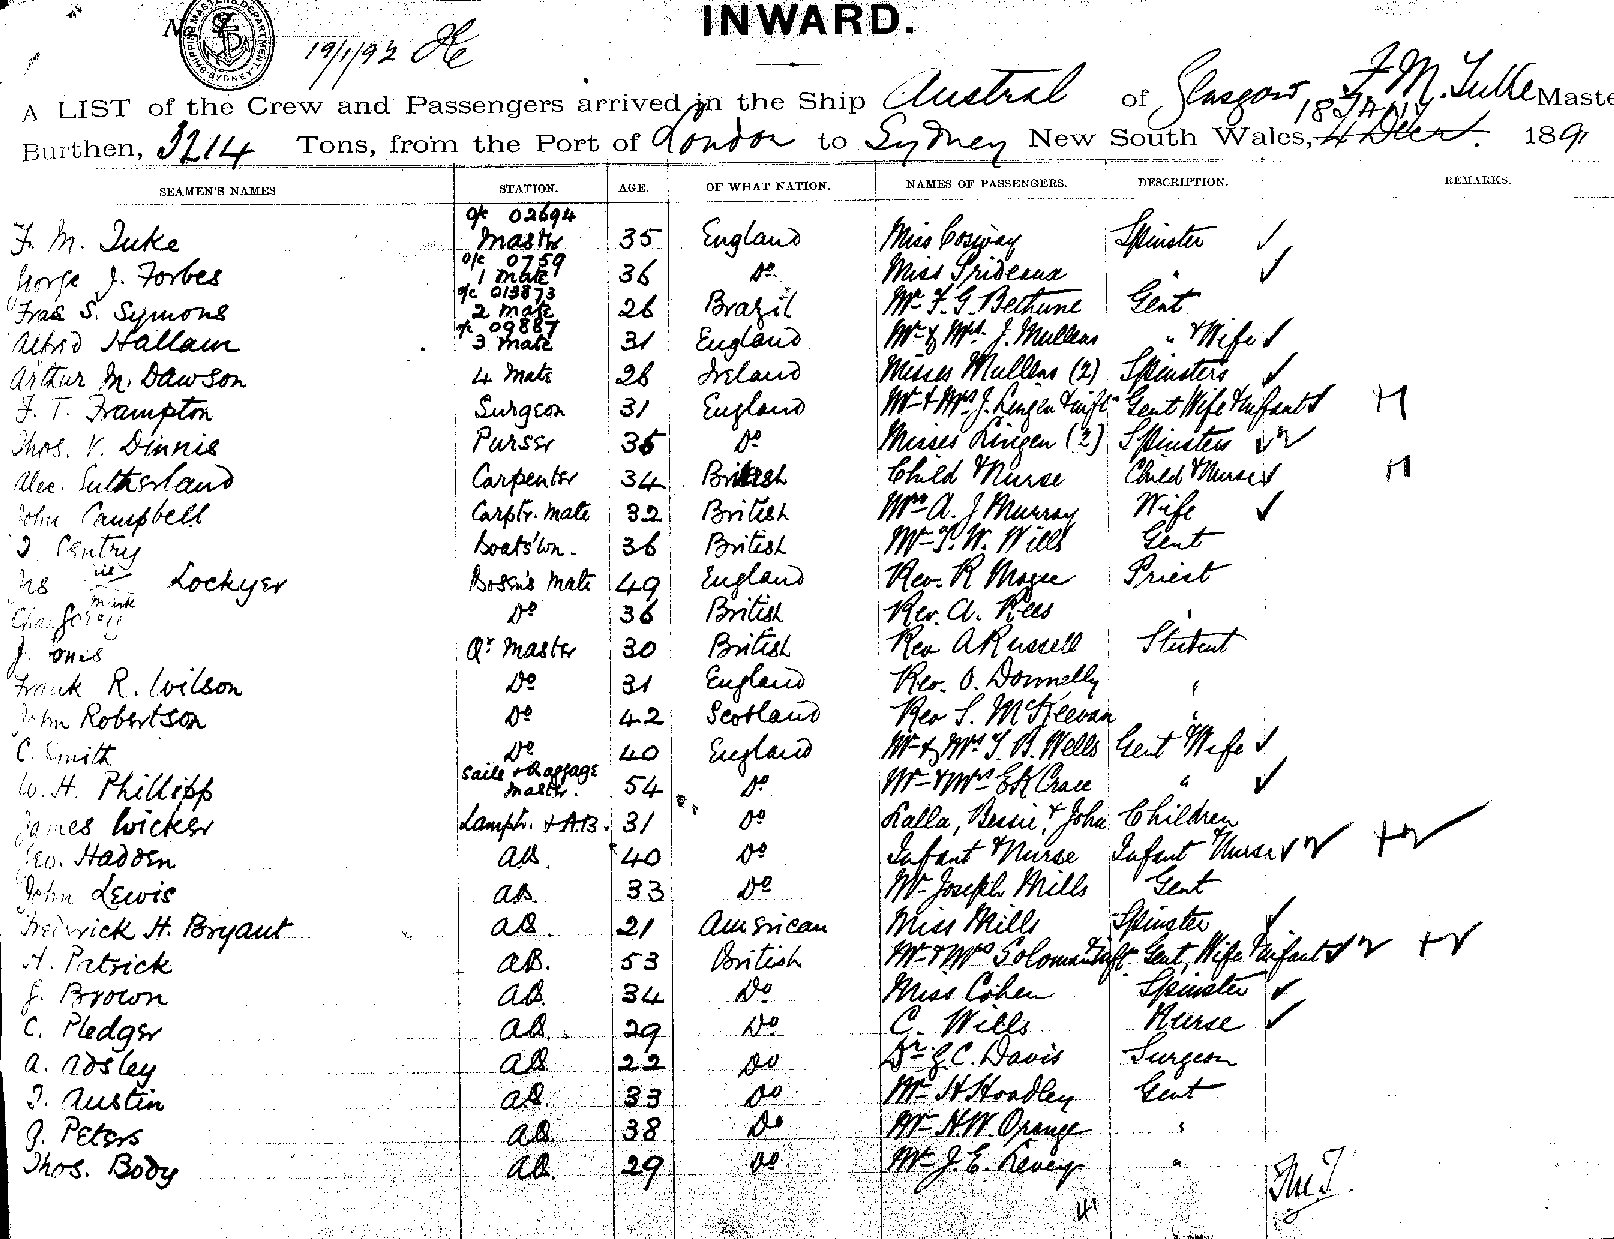 INWARD.
19/1/92
A LIST of the Crew and Passengers arrived in the Ship Austral of Glasgow, F. M. Tuke Maste
Burthen, 3214 Tons, from the Port of London to Sydney New South Wales, 18 Jany 4 Decr. 1891
SEAMEN'S NAMES STATION. AGE. OF WHAT NATION. NAMES OF PASSENGERS. DESCRIPTION. REMARKS.
o/c 02694
F. M. Tuke Master 35 England Miss Cosway Spinster
o/c 0759
George J. Forbes 1 Mate 36 Do Miss Prideaux "
o/c 013873
Fras S. Symons 2 Mate 26 Brazil Mr F. G. Bethune Gent
o/c 09887
Alfrid Hallam 3 Mate 31 England Mr & Mrs J. Mullens " & Wife
Arthur M. Dawson 4 Mate 26 Ireland Misses Mullens (2) Spinsters
F. T. Frampton Surgeon 31 England Mr & Mrs J. Lingen & inft Gent Wife & infant
Thos. V. Dinnis Purser 36 Do Misses Lingen (2) Spinsters
Alec. Sutherland Carpenter 34 British Child & Nurse Child & Nurse
John Campbell Carptr. Mate 32 British Mrs A. J Murray Wife
Boats'wn. 36 British Mr T. W. Wills Gent
Lockyer Bosen's Mate 49 England Rev. R Magee Priest
mark
Do 36 British Rev. A. Rees "
J. Qr Master 30 British Rev A Russell Student
Frank R. Wilson Do 31 England Rev. O. Donnelly "
John Robertson Do 42 Scotland Rev S. McKeevan "
C. Smith Do 40 England Mr & Mrs T. B. Wells Gent & Wife
W. H. Phillipp Sails & Baggage Master 54 Do Mr & Mrs E K Crace "
James Wicker Lamptr. & A.B. 31 Do Lalla, Bessie, & John Children
Geo. Hadden AB 40 Do Infant & Nurse Infant & Nurse
John Lewis AB. 33 Do Mr Joseph Mills Gent
Frederick H. Bryant AB 21 American Miss Mills Spinster
H. Patrick AB. 53 British Mr & Mrs Soloman & Inft Gent, Wife & infant
J. Brown AB. 34 Do Miss Cohen Spinster
C. Pledger AB. 29 Do C. Wills Nurse
A. Adsley AB 22 Do Dr G. C. Davis Surgeon
T. Austin AB. 33 Do Mr H Hoadley Gent
J. Peters AB 38 Do Mr H. W. Orange "
Thos. Body AB. 29 Do Mr J. E. Levey "
41